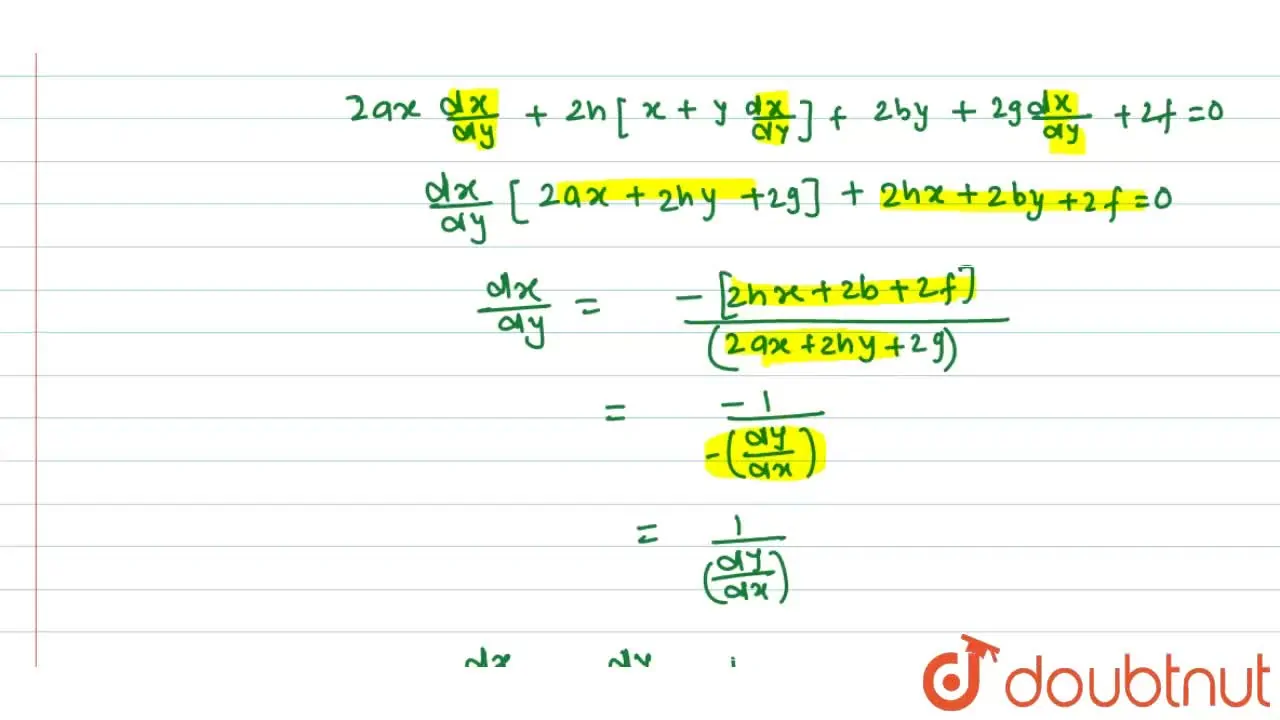 2ax dx/dy + 2h[ x + y dx/dy ] + 2by + 2g dx/dy + 2f = 0
dx/dy [ 2ax + 2hy + 2g] + 2hx + 2by + 2f = 0
dx/dy = - [2hx + 2b + 2f] / (2ax + 2hy + 2g)
= -1 / -(dy/dx)
= 1 / (dy/dx)
dx dy
doubtnut